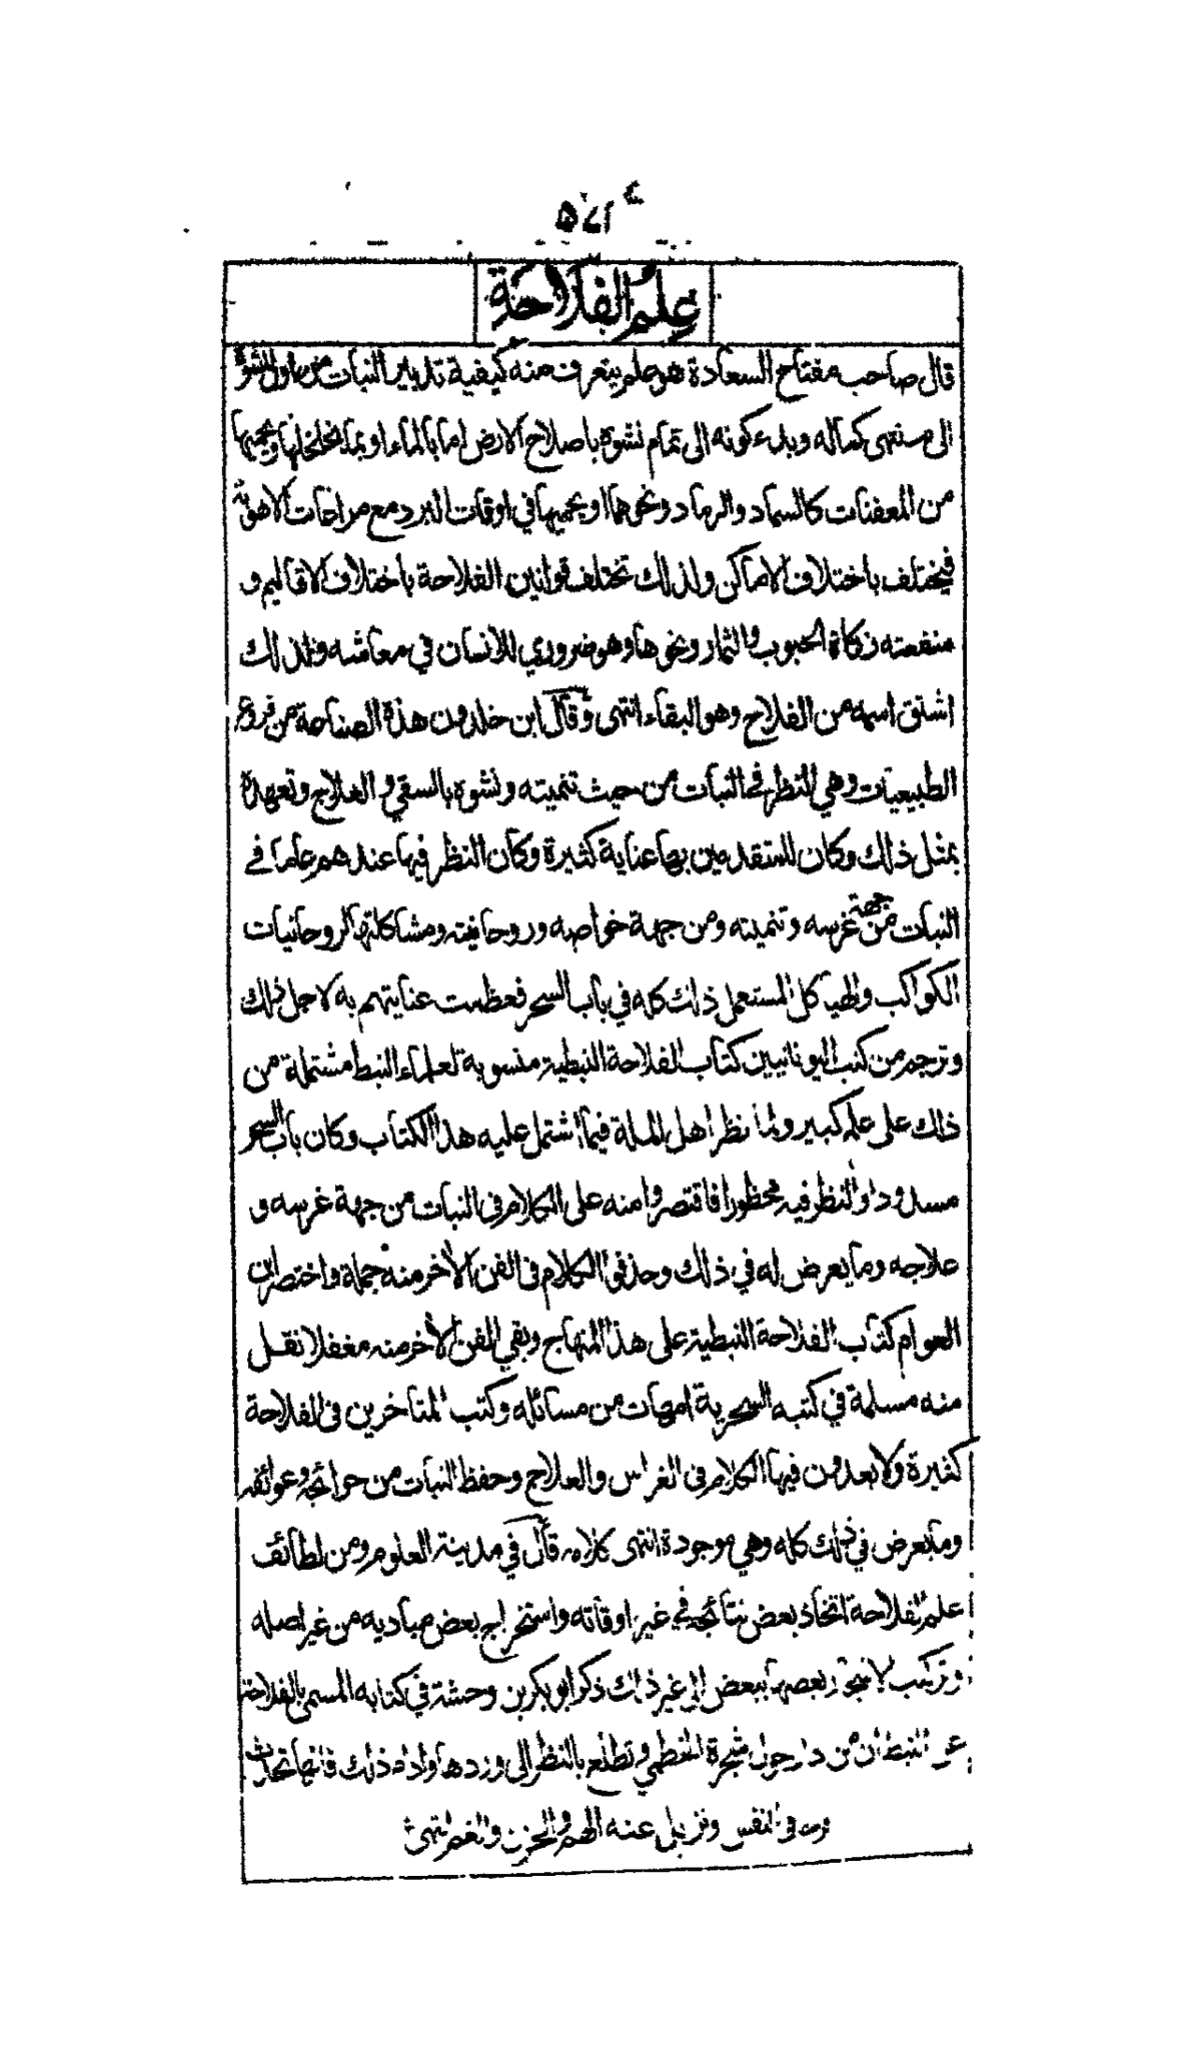 ٥٧٤
علم الفلاحة
قال صاحب مفتاح السعادة هو علم يتعرف منه كيفية تدبير النبات من اول نشوه
الى منتهى كماله وبدء كونه الى تمام نشوه باصلاح الارض اما بالماء او بما يخلخلها ويحميها
من المعفنات كالسماد والرماد ونحوهما او يحميها في اوقات البرد مع مراعات الاهوية
فيختلف باختلاف الاماكن ولذلك تختلف قوانين الفلاحة باختلاف الاقاليم و
منفعته زكاة الحبوب والثمار ونحوها وهو ضروري للانسان في معاشه ولذلك
اشتق اسمه من الفلاح وهو البقاء انتهى وقال ابن خلدون هذه الصناعة من فروع
الطبيعيات وهي النظر في النبات من حيث تنميته ونشوه بالسقي والعلاج وتعهده
بمثل ذلك وكان للمتقدمين بها عناية كثيرة وكان النظر فيها عندهم عاما في
النبات من جهة غرسه وتنميته ومن جهة خواصه وروحانيته ومشاكلتها لروحانيات
الكواكب والهياكل المستعمل ذلك كله في باب السحر فعظمت عنايتهم به لاجل ذلك
وترجم من كتب اليونانيين كتاب الفلاحة النبطية منسوبة لعلماء النبط مشتملة من
ذلك على علم كبير ولما نظر اهل الملة فيما اشتمل عليه هذا الكتاب وكان باب السحر
مسدودا والنظر فيه محظورا فاقتصروا منه على الكلام في النبات من جهة غرسه و
علاجه وما يعرض له في ذلك وحذفوا الكلام في الفن الاخر منه جملة واختصر ابن
العوام كتاب الفلاحة النبطية على هذا المنهاج وبقي الفن الاخر منه مغفلا نقل
منه مسلمة في كتبه السحرية امهات من مسائله وكتب المتاخرين في الفلاحة
كثيرة ولا يعدون فيها الكلام في الغراس والعلاج وحفظ النبات من حوائجه وعوائقه
وما يعرض في ذلك كله وهي موجودة انتهى كلامه قال في مدينة العلوم ومن لطائف
علم الفلاحة اتخاذ بعض نتائجه في غير اوقاته واستخراج بعض مباديه من غير اصله
وتركيب الاشجار بعضها ببعض الى غير ذلك ذكر ابو بكر بن وحشة في كتابه المسمى بالفلاحة
عن النبط ان من دار حول شجرة الخطمي وتطلع بالنظر الى وردها وادام ذلك فانها تحدث
فرحا في النفس وتزيل عنه الهم والحزن والغم انتهى